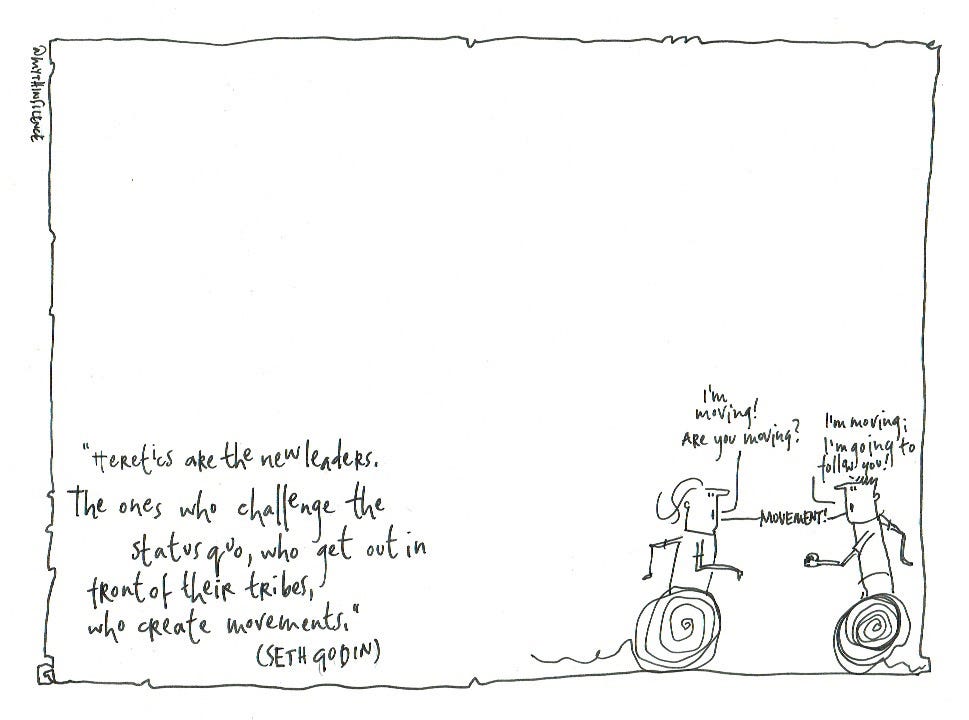 @MYTHINSILENCE
"Heretics are the new leaders.
The ones who challenge the
status quo, who get out in
front of their tribes,
who create movements."
(SETH GODIN)
I'm
moving!
Are you moving?
I'm moving;
I'm going to
follow you!
MOVEMENT!